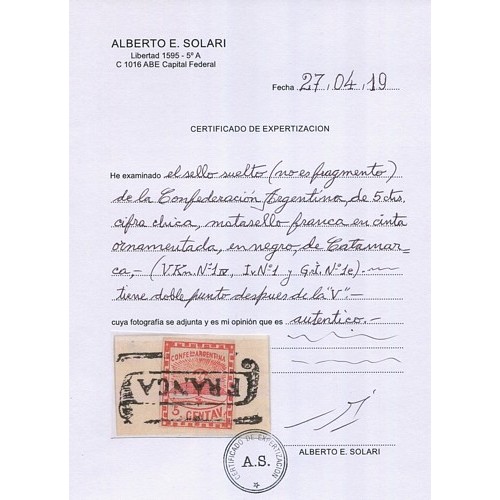 ALBERTO E. SOLARI
Libertad 1595 - 5º A
C 1016 ABE Capital Federal
Fecha 27,04,19
CERTIFICADO DE EXPERTIZACION
He examinado el sello suelto (no es fragmento)
de la Confederación Argentina, de 5 cts.
cifra chica, matasello franca en cinta
ornamentada, en negro, de Catamar=
ca,- (V.Kn. Nº1 IV, Iv Nº1 y G.I. Nº1e).-
tiene doble punto despues de la "V".-
cuya fotografía se adjunta y es mi opinión que es autentico.-
CONFEON ARGENTINA
FRANCA
5 CENTAV
CERTIFICADO DE EXPERTIZACION
A.S.
ALBERTO E. SOLARI